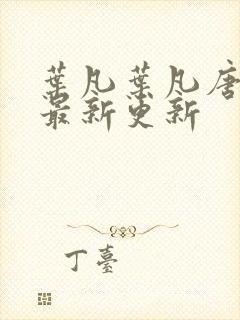 葉凡葉凡唐
最新更新
丁臺